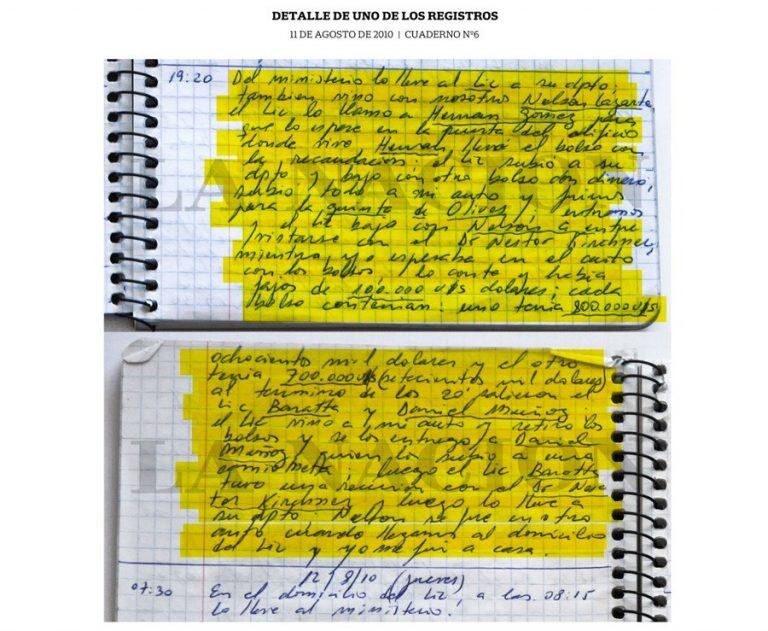 DETALLE DE UNO DE LOS REGISTROS
11 DE AGOSTO DE 2010 | CUADERNO Nº6
19:20 Del ministerio lo lleve al Lic a su dpto;
tambien vino con nosotros Nelson Lazarte
el Lic lo llamo a Hernan Gomez para
que lo espere en la puerta del edificio
donde vive Hernan llevó el bolso con
la recaudación: el Lic subió a su
dpto y bajo con otro bolso con dinero,
subio todo a mi auto y fuimos
para la quinta de Olivos; entramos
el Lic bajo con Nelson a entre
vistarse con el Dr Nestor Kirchner,
mientras yo esperaba en el auto
con los bolsos, lo conte y habia
fajos de 100.000 u$s dolares; cada
bolso contenian: uno tenia 800.000 u$s
LA NACION
ochocientos mil dolares y el otro
tenia 700.000 u$s (setecientos mil dolares)
al termino de los 20' salieron el
Lic Baratta y Daniel Muñoz;
el Lic vino a mi auto y retiro los
bolsos y se los entrego a Daniel
Muñoz quien los subio a una
camioneta luego el Lic Baratta
tuvo una reunion con el Dr Nes
tor Kirchner, luego lo lleve a
su dpto. Nelson se fue en otro
auto cuando llegamos al domicilio
del Lic y yo me fui a casa.
LA NACION
12/8/10 (jueves)
07:30 En el domicilio del Lic, a las 08:15
lo lleve al ministerio.